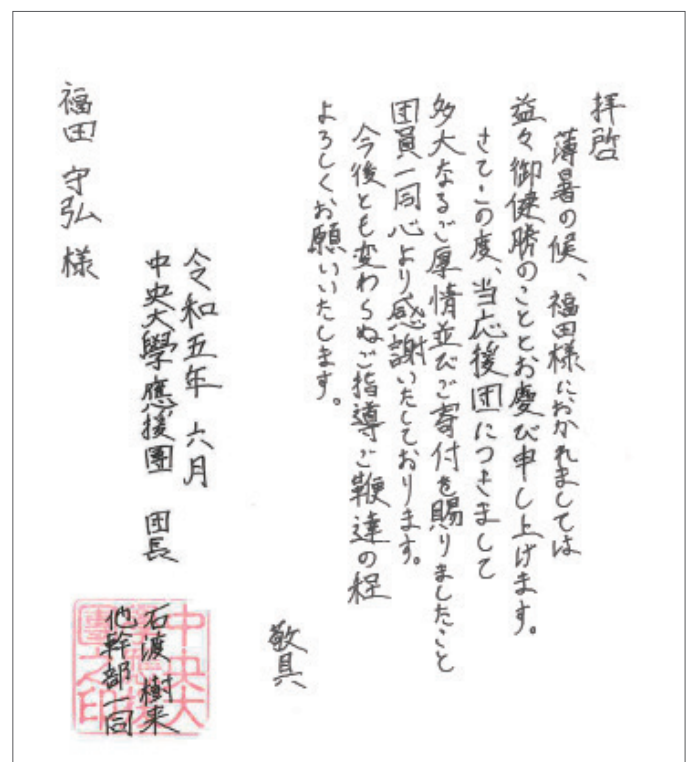 拝啓
薄暑の候、福田様におかれましては
益々御健勝のこととお慶び申し上げます。
さて、この度、当応援団につきまして
多大なるご厚情並びご寄付を賜りましたこと
団員一同心より感謝いたしております。
今後とも変わらぬご指導ご鞭達の程
よろしくお願いいたします。
敬具
令和五年 六月
中央大學應援團 団長
石渡 樹来
他幹部一同
福田 守弘 様
中央大
學應援
團之印